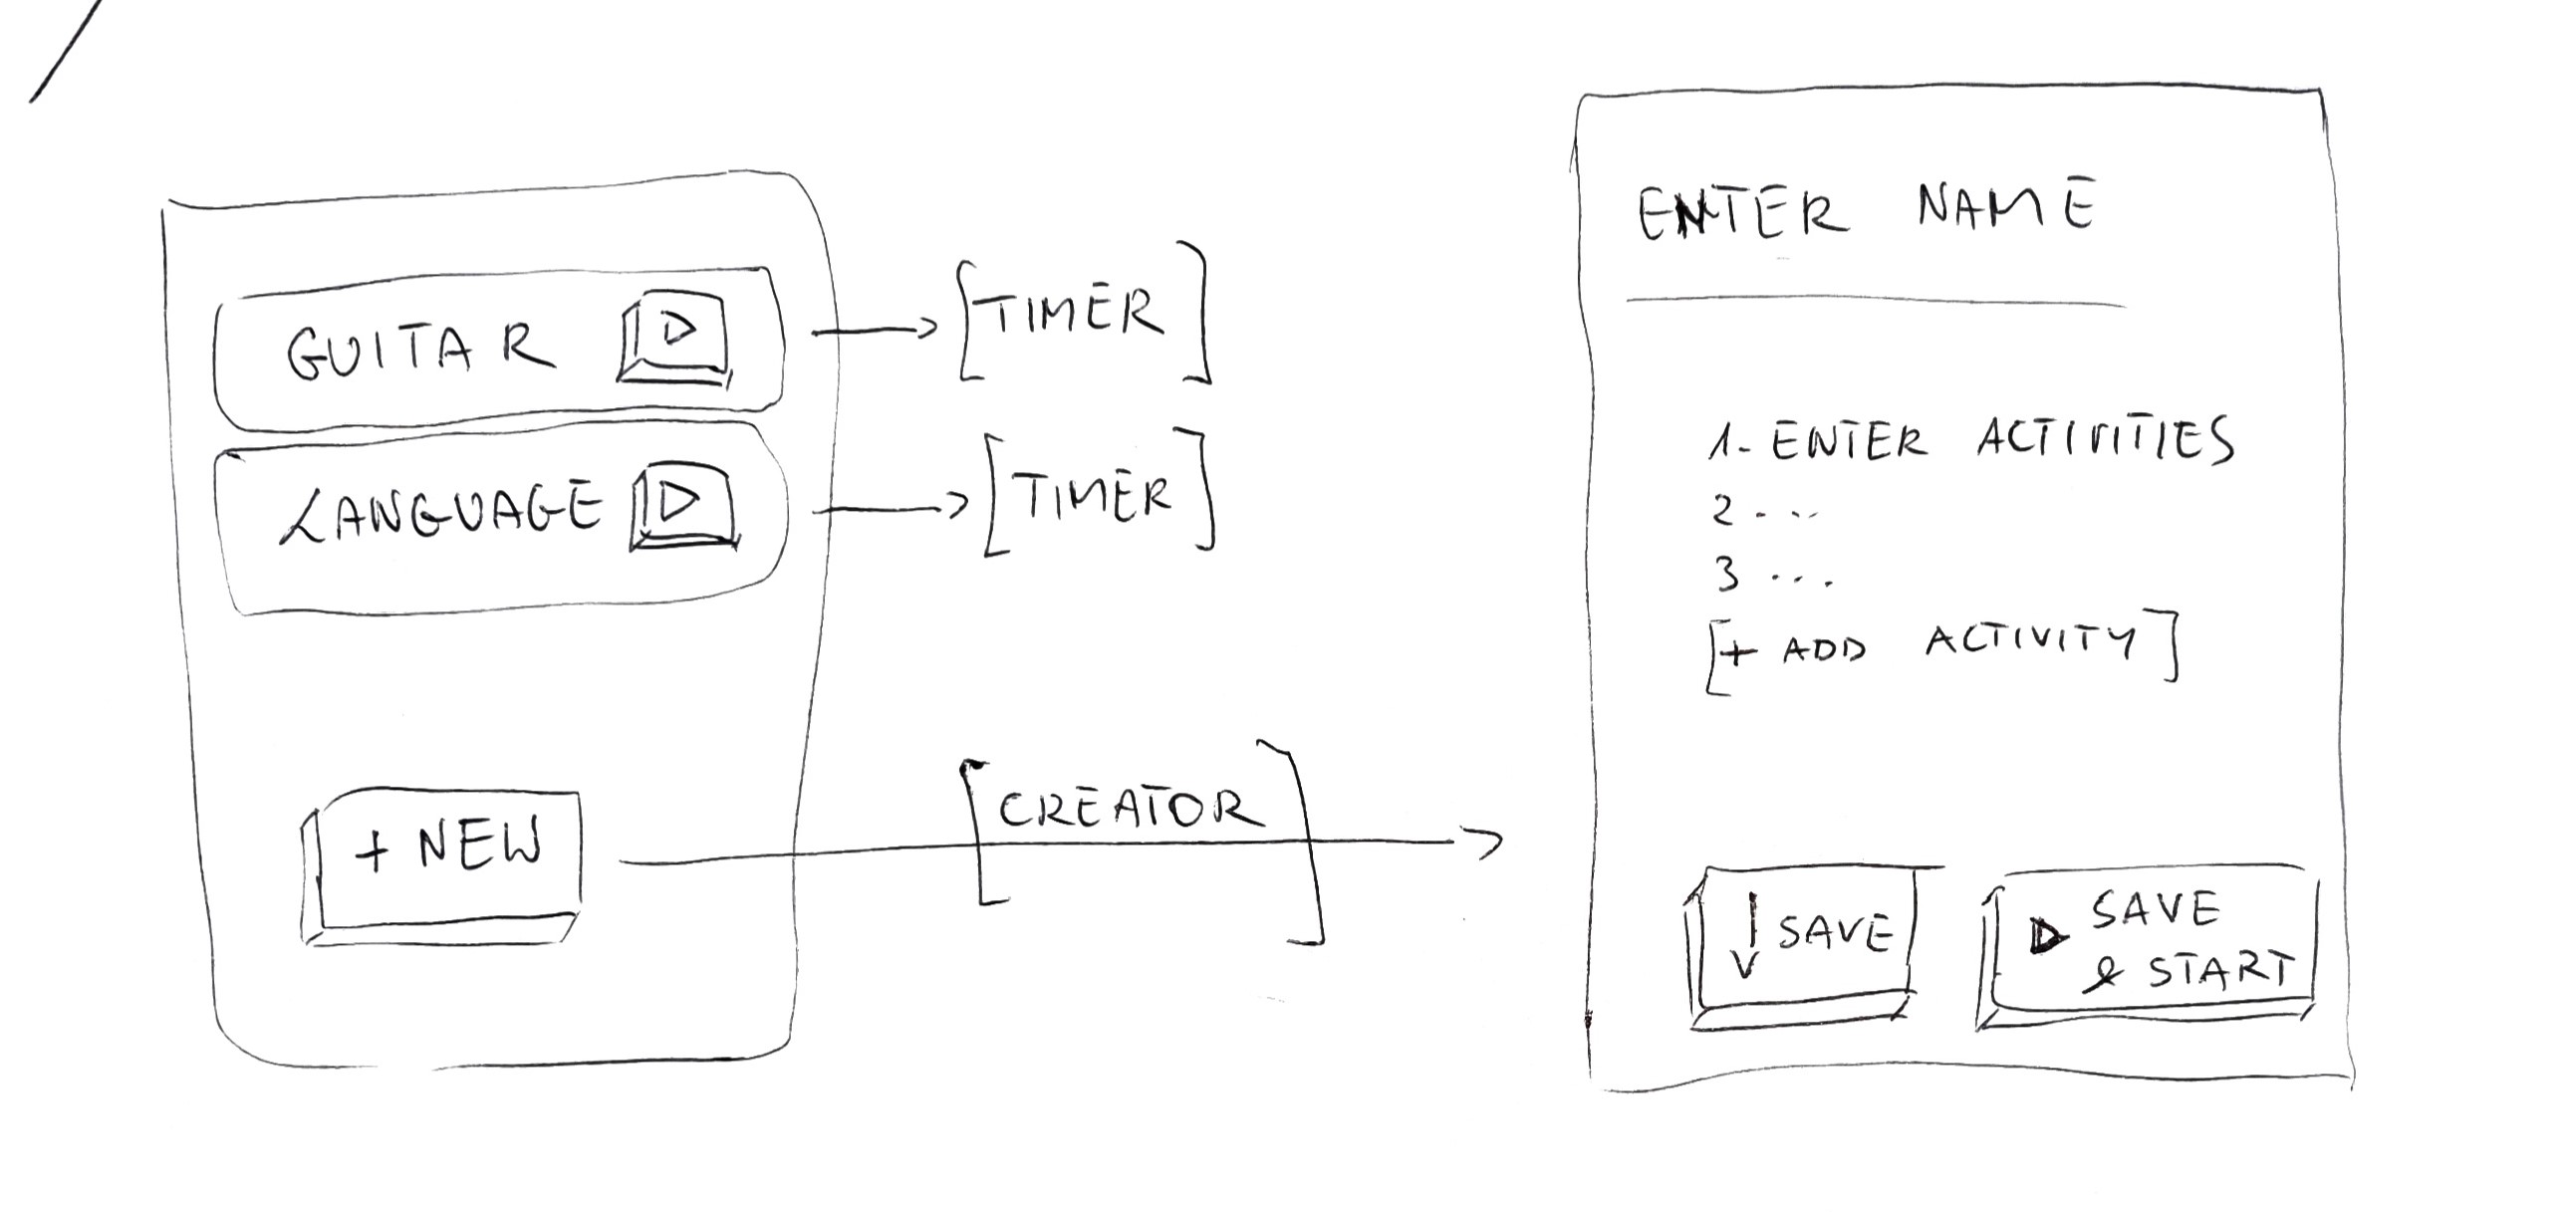 GUITAR
[TIMER]
LANGUAGE
[TIMER]
+ NEW
[CREATOR]
ENTER NAME
1. ENTER ACTIVITIES
2 ...
3 ...
[+ ADD ACTIVITY]
SAVE
SAVE
& START